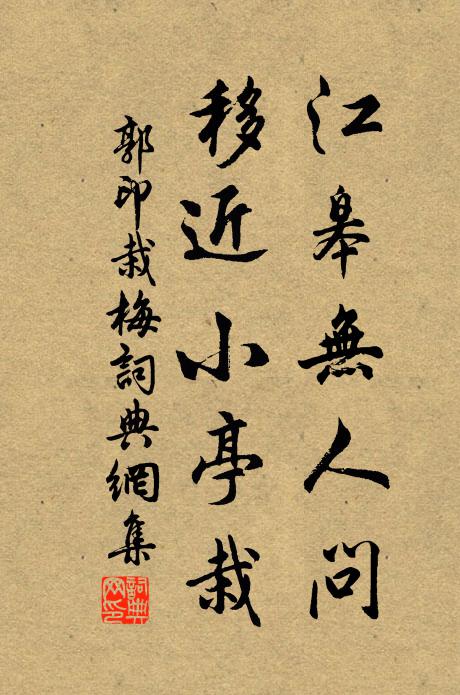 江皋無人問
移近小亭栽
郭印栽梅詞典網集
詞典網印